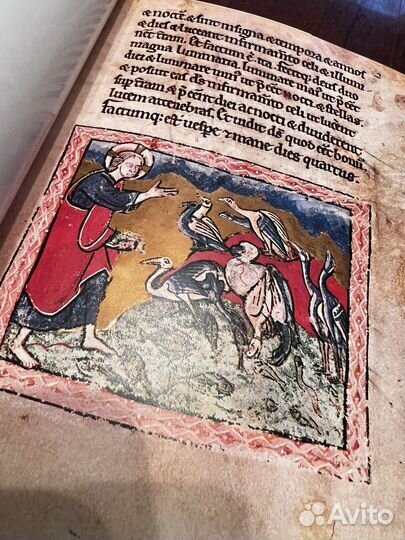 & nocte. & sint insigna & tempora & annos
& dies & luceant infirmam̄to celi & illumi
nēt t̄ram. Et factum ē. ita. fecitq; deus duo
magna luminaria. luminare maius ut p̄eēt
diei & luminare min' ut p̄eēt nocti & stellas.
& posuit eas d̄s infirmam̄to celi ut lucerent
sup t̄ram & p̄eēnt diei ac nocti & diuiderent
lucem ac tenebras. Et uidit d̄s quod eēt bonū.
factumq; est uespe & mane dies quartus.
Avito